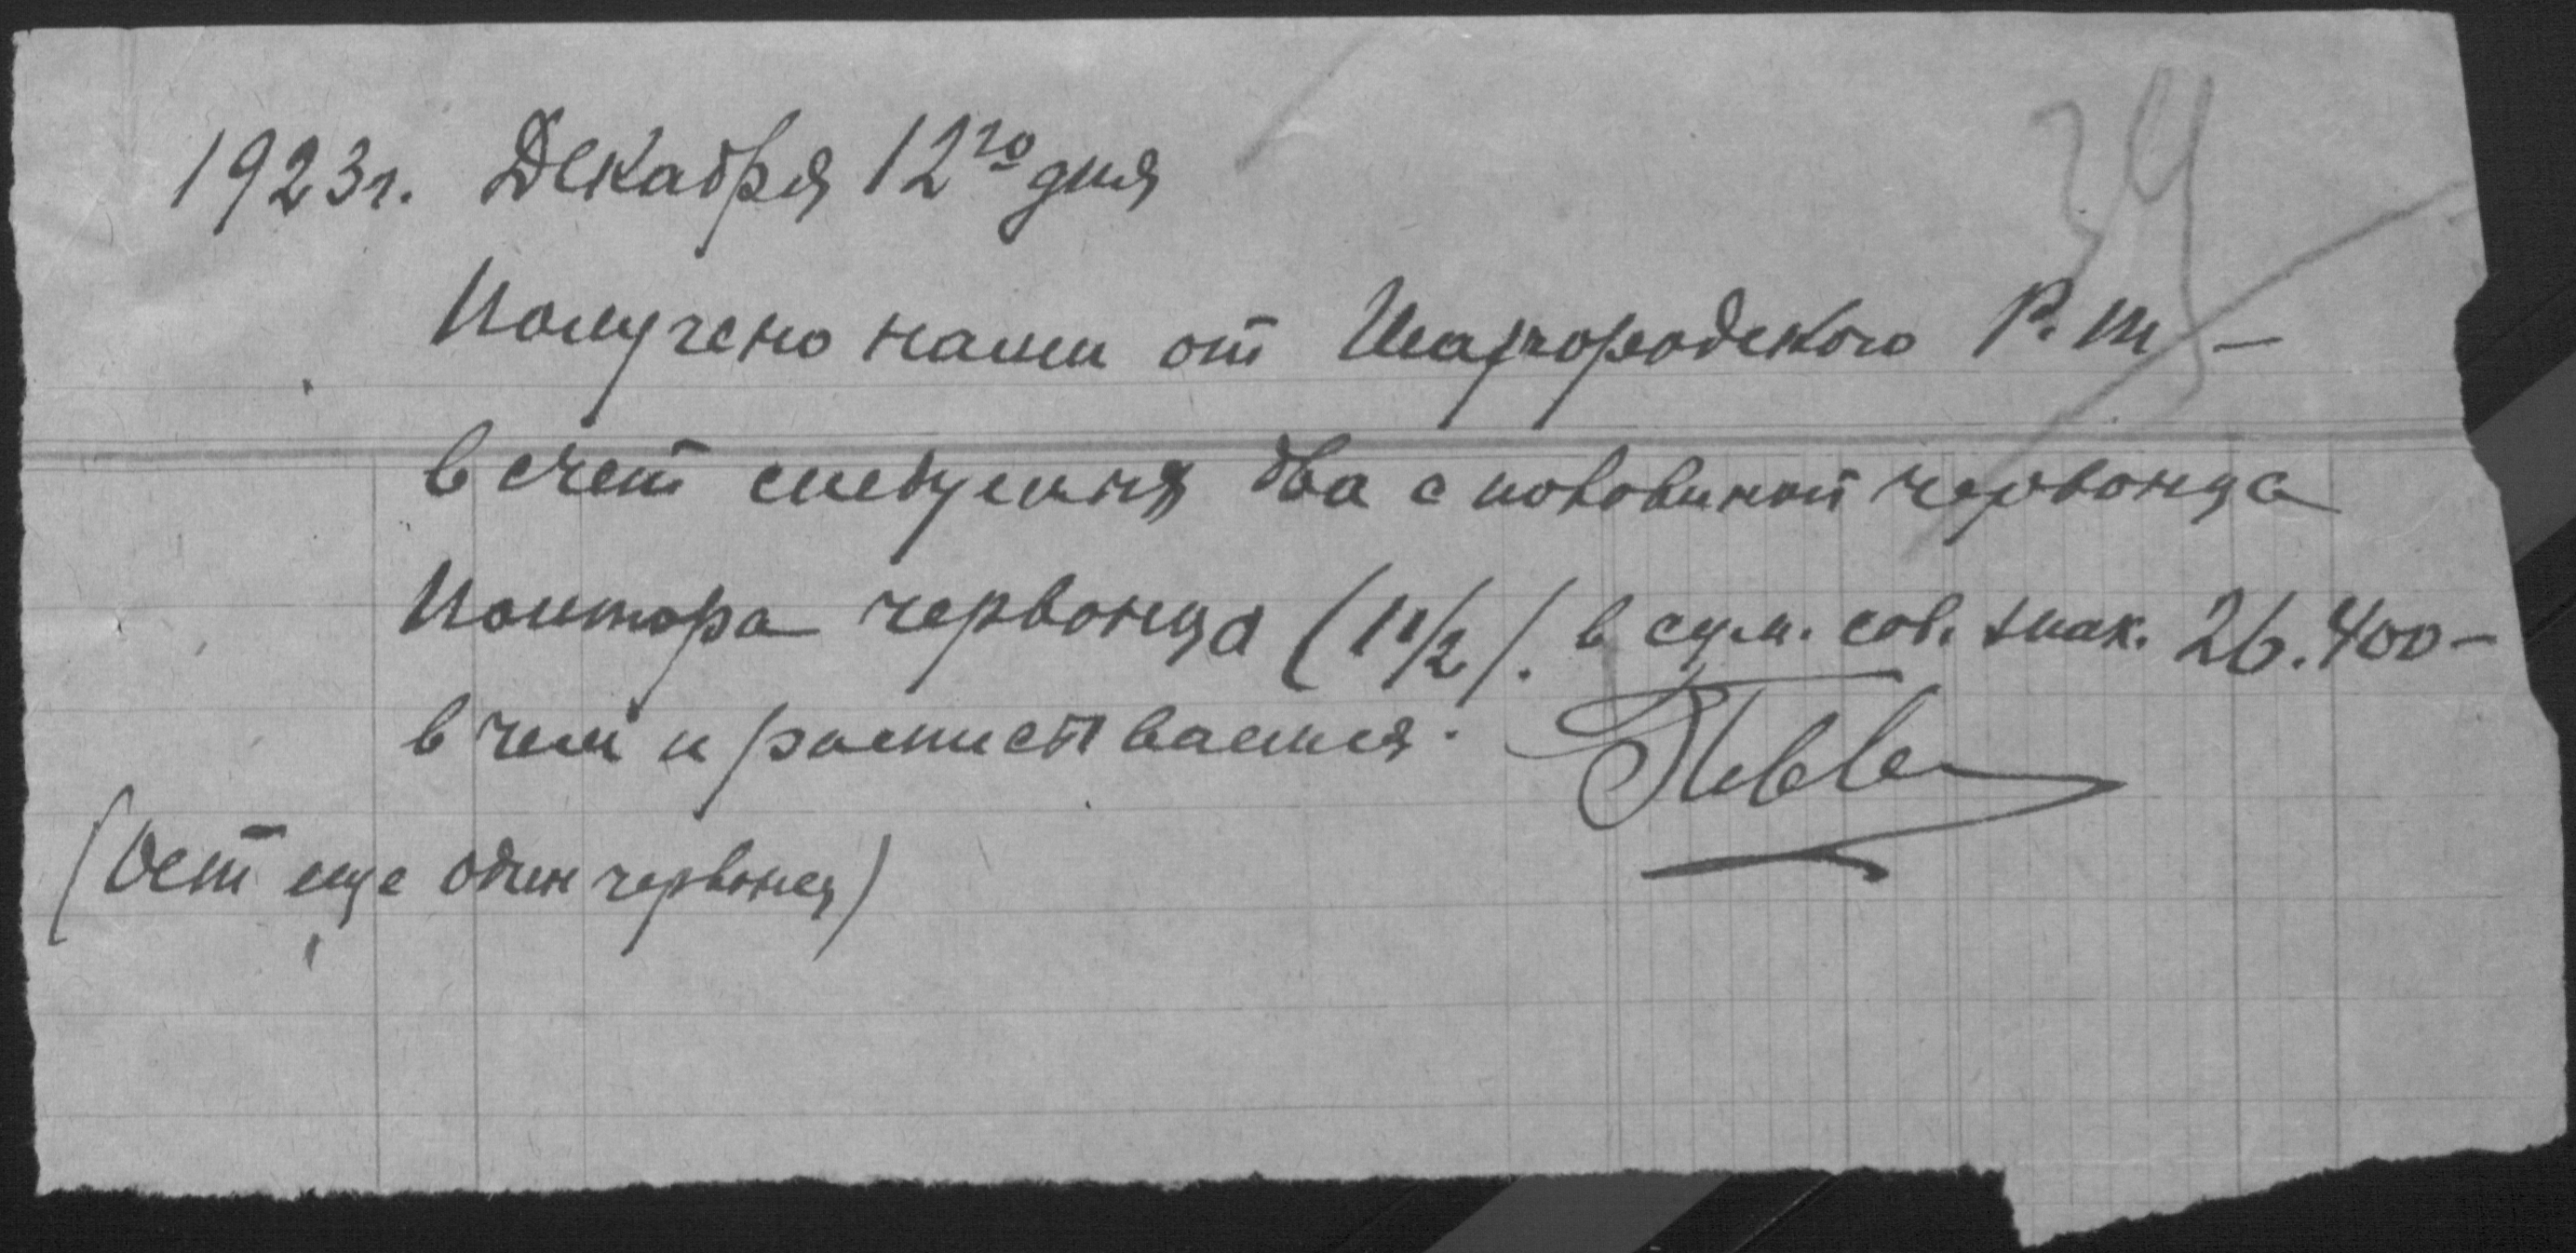 34
1923г. Декабря 12го дня
Получено нами от Шаргородского Р. Ш –
в счет следуемых два с половиной червонца
Полтора червонца (1 1/2). в сум. сов. знак. 26.400 –
в чем и расписываемся.
(Ост еще один червонец)